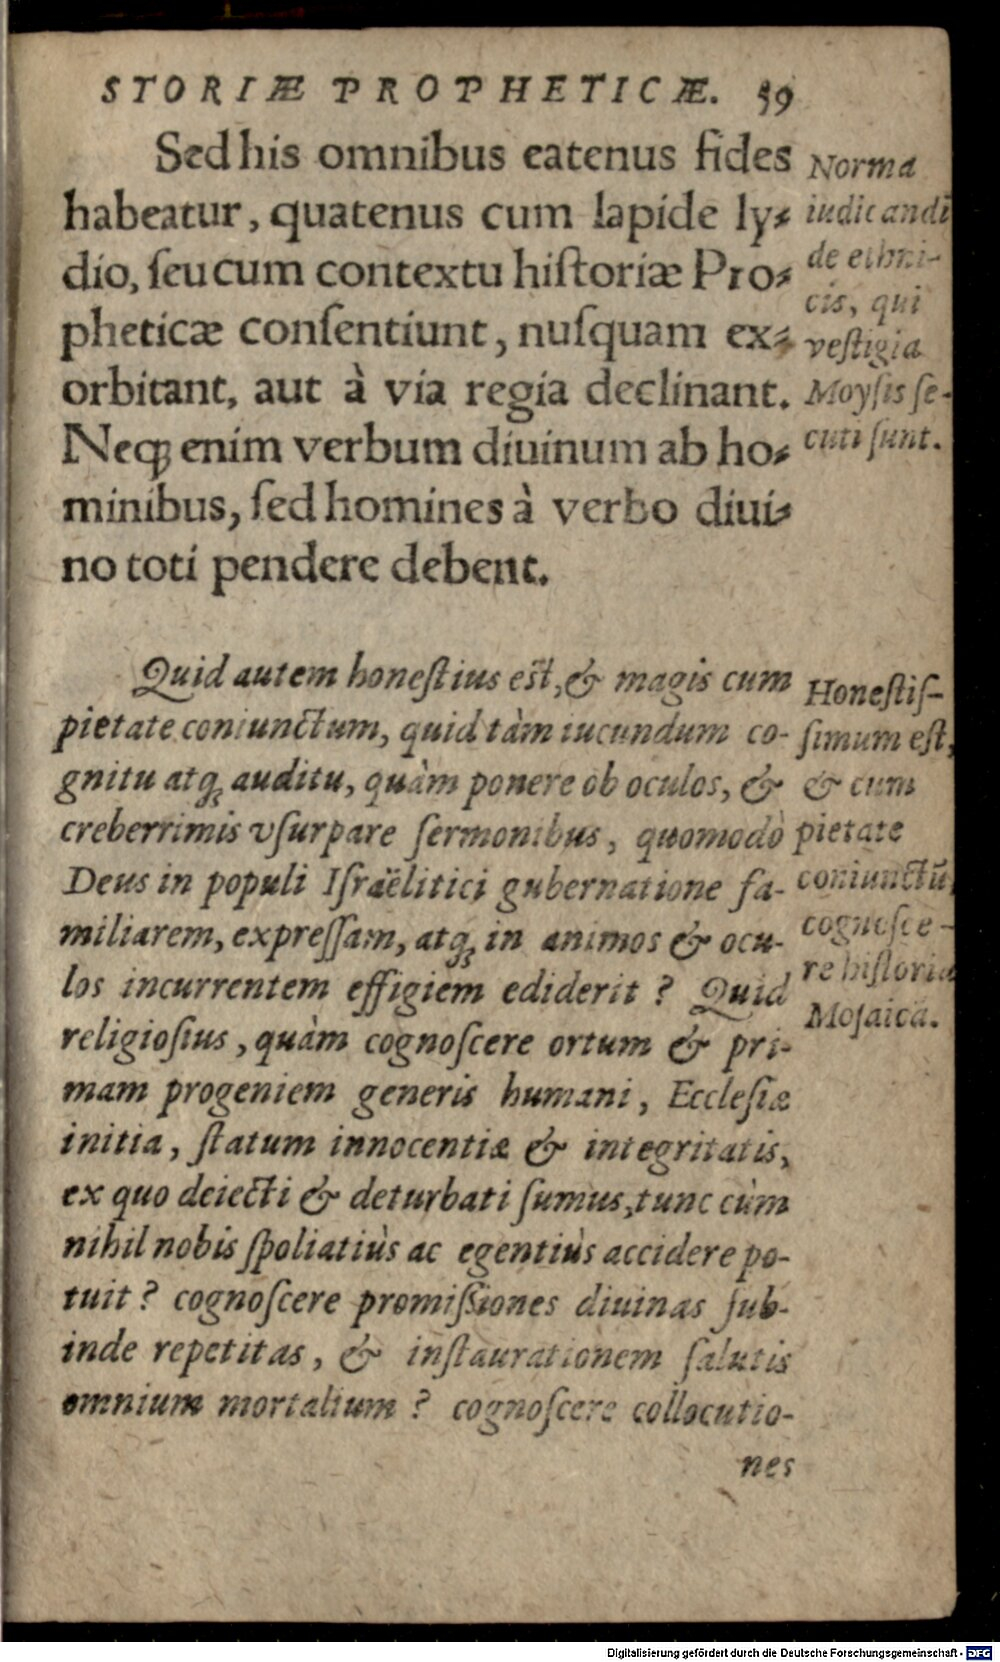 STORIÆ PROPHETICÆ. 59
Sed his omnibus eatenus fides
habeatur, quatenus cum lapide ly⸗
dio, ſeu cum contextu hiſtoriæ Pro⸗
pheticæ conſentiunt, nuſquam ex⸗
orbitant, aut à via regia declinant.
Neq́; enim verbum diuinum ab ho⸗
minibus, ſed homines à verbo diui⸗
no toti pendere debent.
Norma
iudicandi
de ethni-
cis, qui
veſtigia
Moyſis ſe-
cuti ſunt.
Quid autem honeſtius eſt, & magis cum
pietate coniunctum, quid tàm iucundum co-
gnitu atq; auditu, quàm ponere ob oculos, &
creberrimis vſurpare ſermonibus, quomodò
Deus in populi Iſraëlitici gubernatione fa-
miliarem, expreſſam, atq; in animos & ocu-
los incurrentem effigiem ediderit? Quid
religioſius, quàm cognoſcere ortum & pri-
mam progeniem generis humani, Eccleſiæ
initia, ſtatum innocentiæ & integritatis,
ex quo deiecti & deturbati ſumus, tunc cùm
nihil nobis ſpoliatiùs ac egentiùs accidere po-
tuit? cognoſcere promiſſiones diuinas ſub-
inde repetitas, & inſtaurationem ſalutis
omnium mortalium? cognoſcere collocutio-
nes
Honeſtiſ-
ſimum eſt,
& cum
pietate
coniunctũ,
cognoſce-
re hiſtoria
Moſaicã.
Digitalisierung gefördert durch die Deutsche Forschungsgemeinschaft - DFG